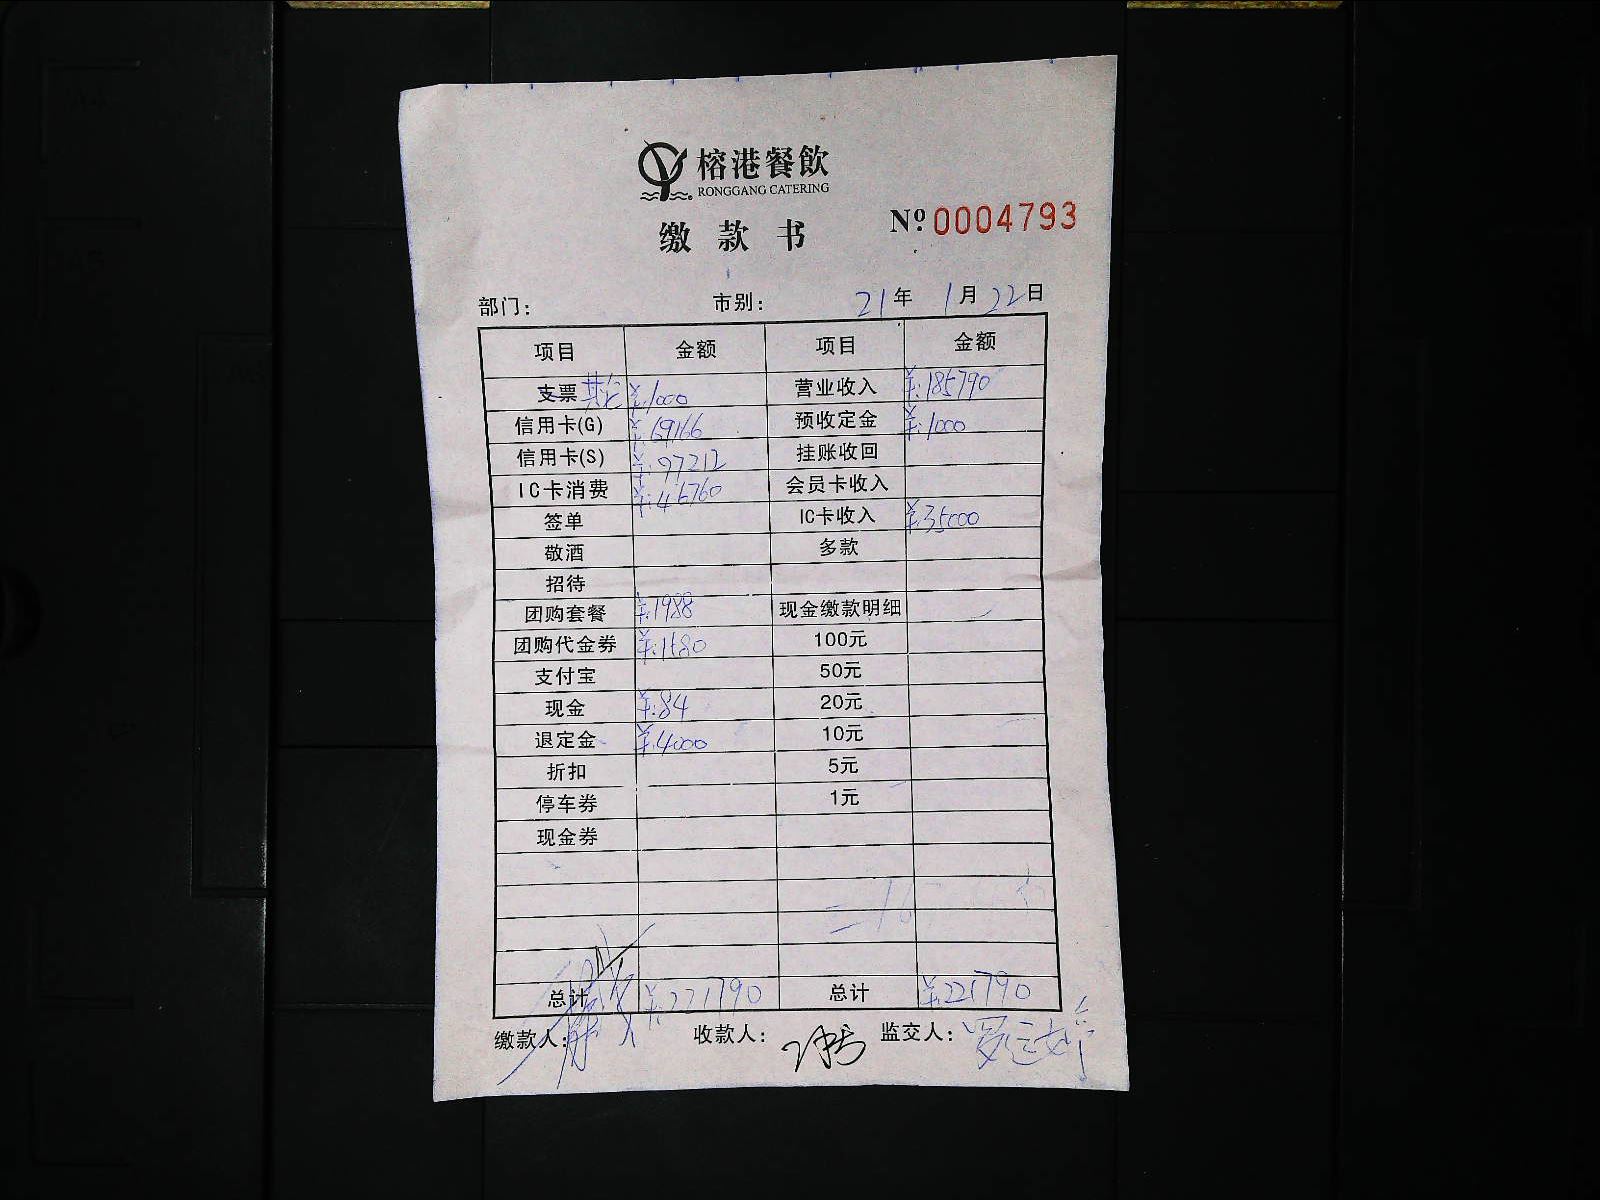 榕港餐飲
RONGGANG CATERING
缴款书 Nº 0004793
部门: 市别: 21年 1月 22日
项目 金额 项目 金额
支票 其它 ¥:1000 营业收入 ¥:185790
信用卡(G) ¥:69166 预收定金 ¥:1000
信用卡(S) ¥:97212 挂账收回
IC卡消费 ¥:46760 会员卡收入
签单 IC卡收入 ¥:35000
敬酒 多款
招待
团购套餐 ¥:1988 现金缴款明细
团购代金券 ¥:1580 100元
支付宝 50元
现金 ¥:84 20元
退定金 ¥:4000 10元
折扣 5元
停车券 1元
现金券
总计 ¥:221790 总计 ¥:221790
缴款人: 收款人: 监交人: